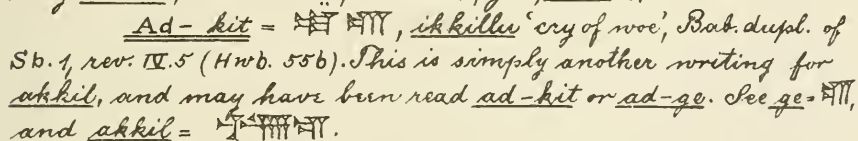 Ad-kit = 𒀜 𒆤, ikkillu 'cry of woe', Bab. dupl. of
Sb. 1, rev. IV. 5 (Hwb. 55b). This is simply another writing for
akkil, and may have been read ad-kit or ad-ge. See ge = 𒆤,
and akkil =